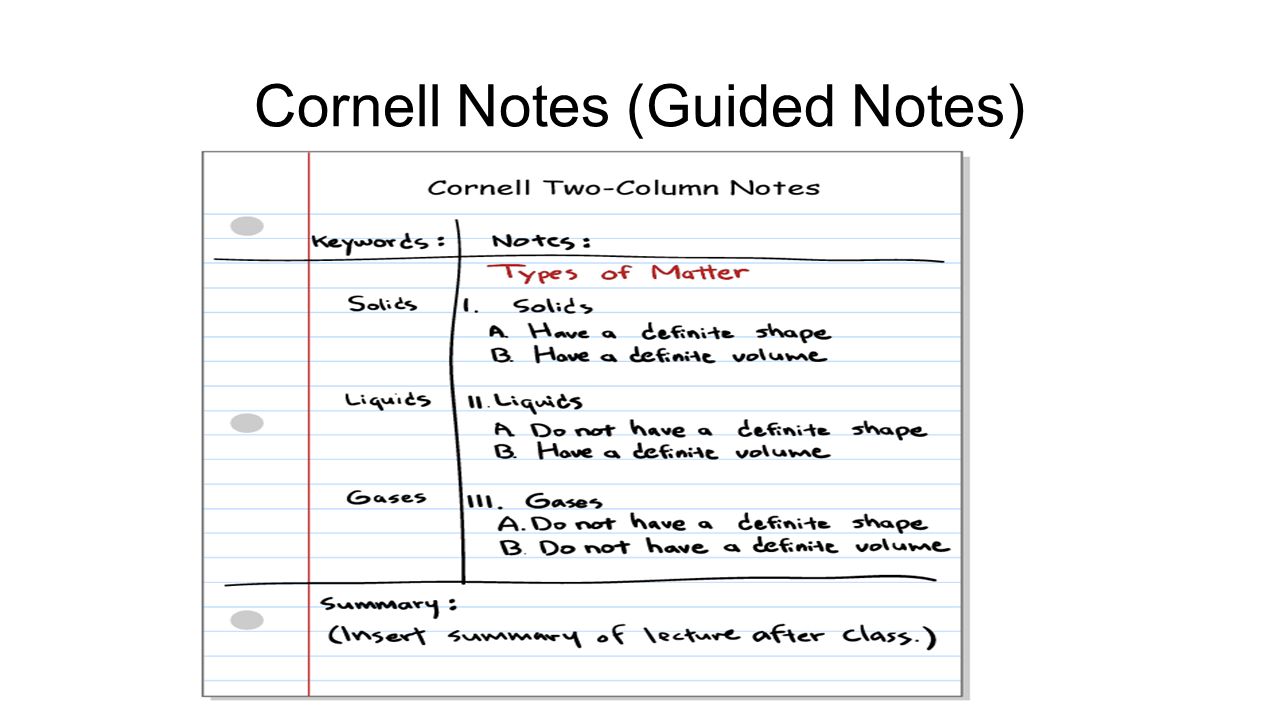 Cornell Notes (Guided Notes)
Cornell Two-Column Notes
Keywords: Notes:
Types of Matter
Solids I. Solids
A. Have a definite shape
B. Have a definite volume
Liquids II. Liquids
A. Do not have a definite shape
B. Have a definite volume
Gases III. Gases
A. Do not have a definite shape
B. Do not have a definite volume
Summary:
(Insert summary of lecture after class.)